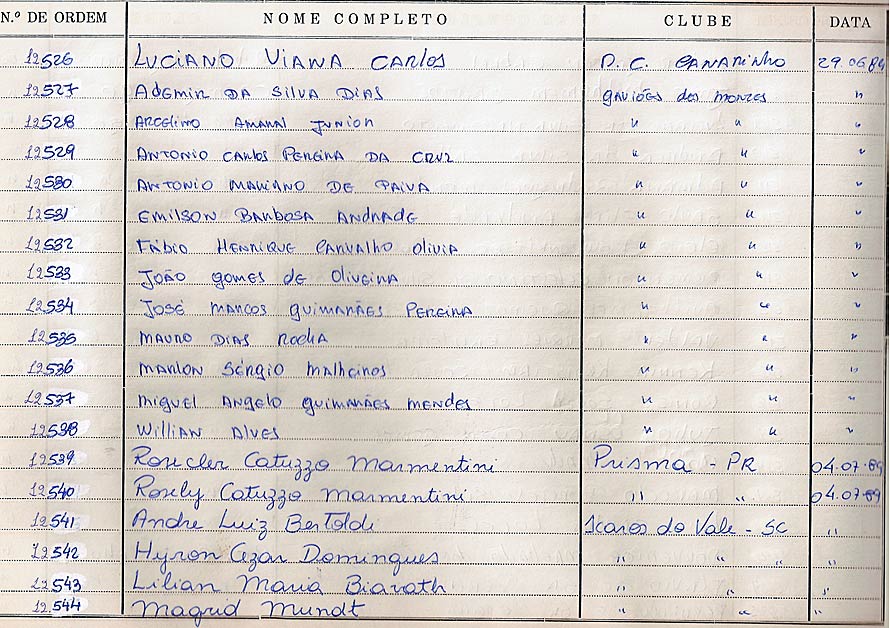 N.º DE ORDEM NOME COMPLETO CLUBE DATA
12526 LUCIANO VIANA CARLOS P. C. CANARINHO 29.06.89
12527 Ademir DA Silva DIAS gaviões dos montes "
12528 ARCELINO AMARAL JUNIOR " " "
12529 ANTONIO CARLOS PEREIRA DA CRUZ " " "
12530 ANTONIO MARIANO DE PAIVA " " "
12531 EMILSON BARBOSA ANDRADE " " "
12532 FÁBIO HENRIQUE CARVALHO OLIVIA " " "
12533 JOÃO gomes de Oliveira " " "
12534 JOSÉ MARCOS GUIMARÃES PEREIRA " " "
12535 MAURO DIAS ROCHA " " "
12536 MARLON SÉRGIO MALHEIROS " " "
12537 MIGUEL ANGELO GUIMARÃES MENDES " " "
12538 WILLIAN ALVES " " "
12539 Roseler Catuzzo Marmentini Prisma - PR 04.07.89
12540 Rosely Catuzzo Marmentini " " 04.07.89
12541 Andre Luiz Bertoldi Icaros do Vale - SC "
12542 Hyron Cezar Domingues " " " "
12543 Lilian Maria Biavath " " "
12.544 Magrid Mundt " " "